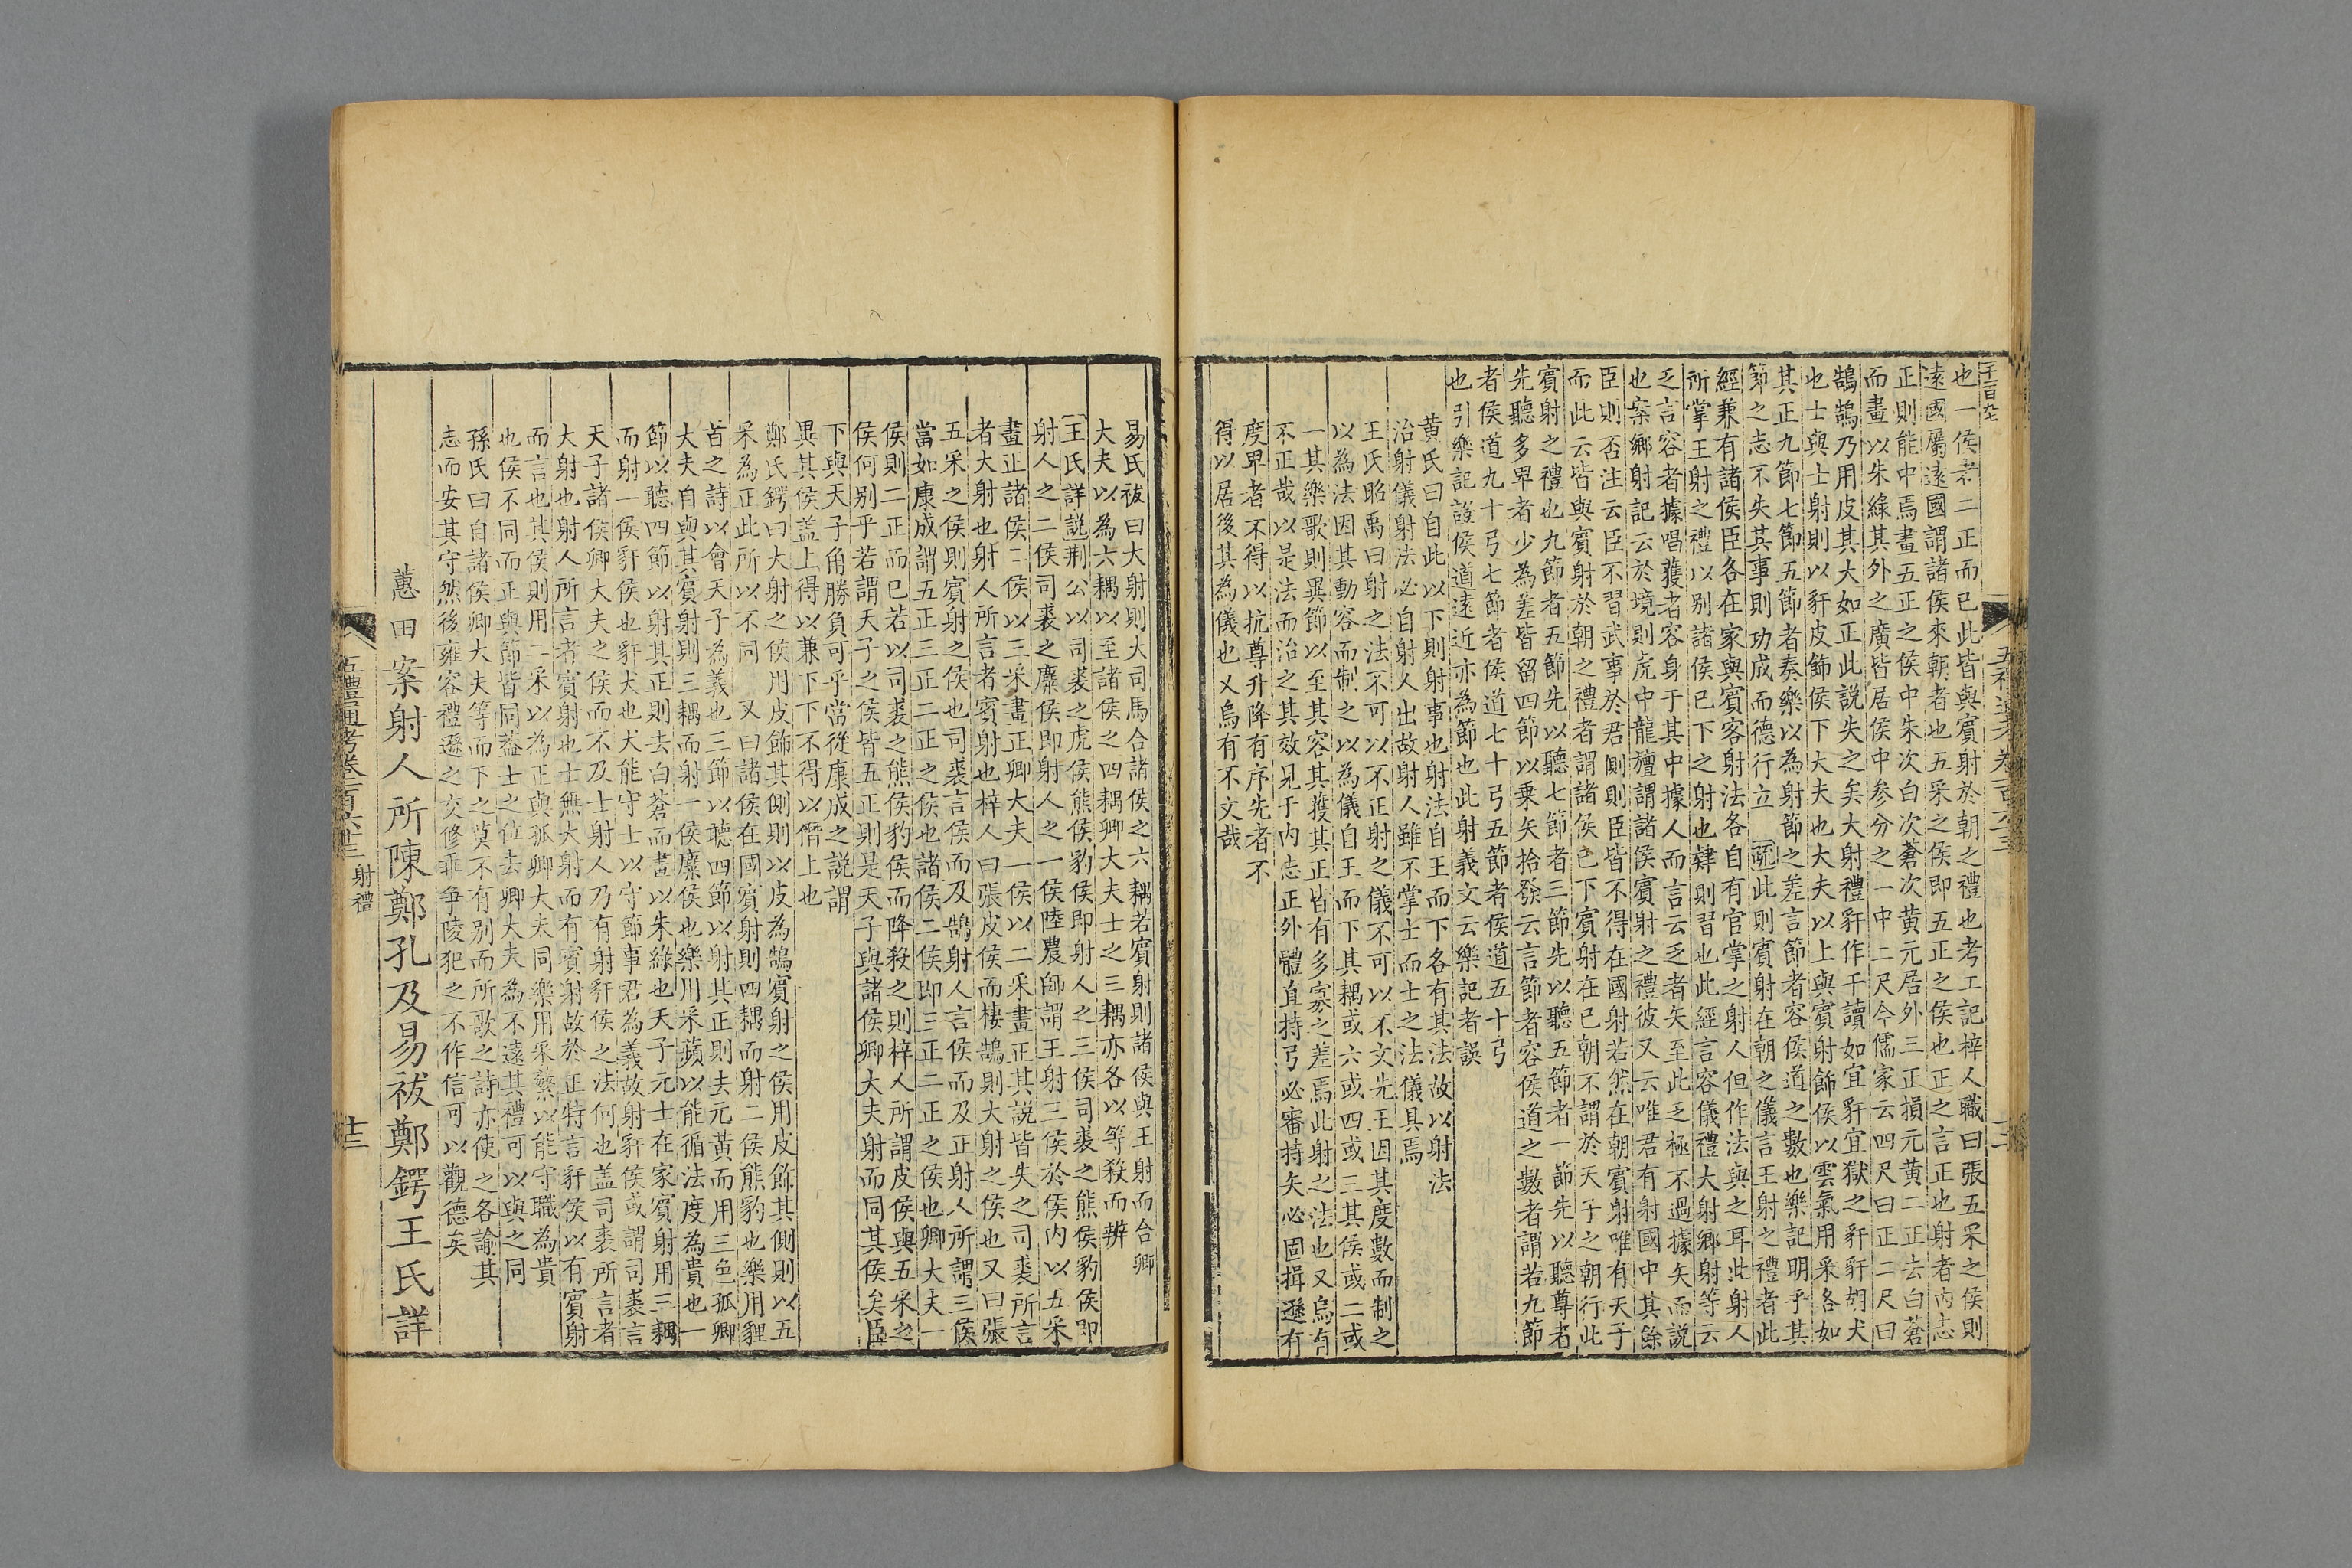 也一侯者二正而已此皆與賓射於朝之禮也考工記梓人職曰張五采之侯則
遠國屬遠國謂諸侯來朝者也五采之侯即五正之侯也正之言正也射者內志
正則能中焉畫五正之侯中朱次白次蒼次黃元居外三正損元黃二正去白蒼
而畫以朱綠其外之廣皆居侯中參分之一中二尺今儒家云四尺曰正二尺曰
鵠鵠乃用皮其大如正此說失之矣大射禮豻作干讀如宜豻宜獄之豻豻胡犬
也士與士射則以豻皮飾侯下大夫也大夫以上與賓射飾侯以雲氣用采各如
其正九節七節五節者奏樂以為射節之差言節者容侯道之數也樂記明乎其
節之志不失其事則功成而德行立 疏此則賓射在朝之儀言王射之禮者此
經兼有諸侯臣各在家與賓客射法各自有官掌之射人但作法與之耳此射人
所掌王射之禮以別諸侯已下之射也肄則習也此經言容儀禮大射鄉射等云
乏言容者據唱獲者容身于其中據人而言云乏者矢至此乏極不過據矢而說
也案鄉射記云於境則虎中龍旜謂諸侯賓射之禮彼又云唯君有射國中其餘
臣則否注云臣不習武事於君側則臣皆不得在國射若然在朝賓射唯有天子
而此云皆與賓射於朝之禮者謂諸侯已下賓射在已朝不謂於天子之朝行此
賓射之禮也九節者五節先以聽七節者三節先以聽五節者一節先以聽尊者
先聽多卑者少為差皆留四節以乘矢拾發云言節者容侯道之數者謂若九節
者侯道九十弓七節者侯道七十弓五節者侯道五十弓
也引樂記設侯道遠近亦為節也此射義文云樂記者誤
黃氏曰自此以下則射事也射法自王而下各有其法故以射法
治射儀射法必自射人出故射人雖不掌士而士之法儀具焉
王氏昭禹曰射之法不可以不正射之儀不可以不文先王因其度數而制之
以為法因其動容而制之以為儀自王而下其耦或六或四或三其侯或二或
一其樂歌則異節以至其容其獲其正皆有多寡之差焉此射之法也又烏有
不正哉以是法而治之其效見于內志正外體直持弓必審持矢必固揖遜有
度卑者不得以抗尊升降有序先者不
得以居後其為儀也又烏有不文哉
五禮通考卷一百六十三
十二
易氏祓曰大射則大司馬合諸侯之六耦若賓射則諸侯與王射而合卿
大夫以為六耦以至諸侯之四耦卿大夫士之三耦亦各以等殺而辨
王氏詳說荆公以司裘之虎侯熊侯豹侯即射人之三侯司裘之熊侯豹侯即
射人之二侯司裘之麋侯即射人之一侯陸農師謂王射三侯於侯內以五采
畫正諸侯二侯以三采畫正卿大夫一侯以二采畫正其說皆失之司裘所言
者大射也射人所言者賓射也梓人曰張皮侯而棲鵠則大射之侯也又曰張
五采之侯則賓射之侯也司裘言侯而及鵠射人言侯而及正射人所謂三侯
當如康成謂五正三正二正之侯也諸侯二侯即三正二正之侯也卿大夫一
侯則二正而已若以司裘之熊侯豹侯而降殺之則梓人所謂皮侯與五采之
侯何別乎若謂天子之侯皆五正則是天子與諸侯卿大夫射而同其侯矣臣
下與天子角勝負可乎當從康成之說謂
異其侯盖上得以兼下下不得以僭上也
鄭氏鍔曰大射之侯用皮飾其側則以皮為鵠賓射之侯用皮飾其側則以五
采為正此所以不同 又曰諸侯在國賓射則四耦而射二侯熊豹也樂用貍
首之詩以會天子為義也三節以聽四節以射其正則去元黃而用三色孤卿
大夫自與其賓射則三耦而射一侯麋侯也樂用采蘋以能循法度為貴也一
節以聽四節以射其正則去白蒼而畫以朱綠也天子元士在家賓射用三耦
而射一侯豻侯也豻犬也犬能守士以守節事君為義故射豻侯或謂司裘言
天子諸侯卿大夫之侯而不及士射人乃有射豻侯之法何也盖司裘所言者
大射也射人所言者賓射也士無大射而有賓射故於正特言豻侯以有賓射
而言也其侯則用二采以為正與孤卿大夫同樂用采蘩以能守職為貴
也侯不同而正與節皆同葢士之位去卿大夫為不遠其禮可以與之同
孫氏曰自諸侯卿大夫等而下之莫不有別而所歌之詩亦使之各諭其
志而安其守然後雍容禮遜之交修乖爭陵犯之不作信可以觀德矣
蕙田案射人所陳鄭孔及易祓鄭鍔王氏詳
五禮通考卷一百六十三 射禮
十三